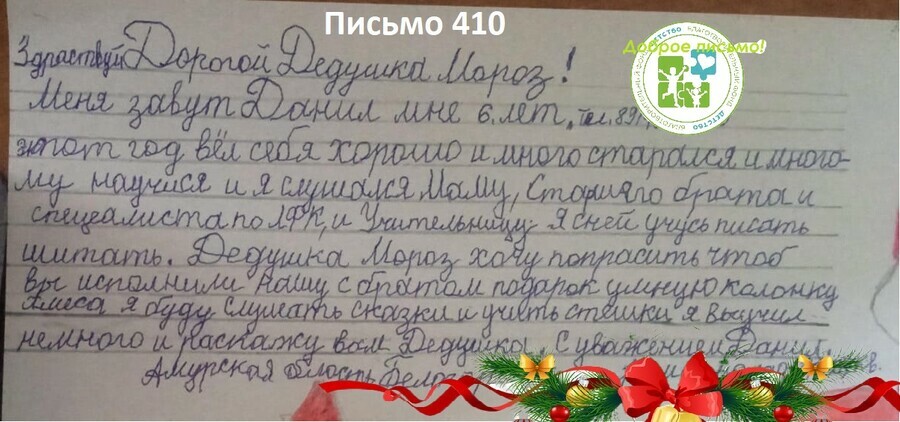 Письмо 410
Доброе письмо!
БЛАГОТВОРИТЕЛЬНЫЙ ФОНД ДЕТСТВО БЛАГОТВОРИТЕЛЬНЫЙ ФОНД ДЕТСТВО
Здраствуй Дорогой Дедушка Мороз!
Меня завут Данил мне 6 лет, тел. 891
этот год вёл себя хорошо и много старался и много-
му научися и я слушался Маму, Старшяго брата и
спецеалиста по ЛФК, и Учительницу Я сней учусь писать
шитать. Дедушка Мороз хочу попрасить чтоб
вы исполнили нашу с братом подарок умную калонку
Алиса я буду слушать сказки и учить стешки я выучил
немного и раскажу вам Дедушка. С уважением Данил.
Амурская область Белог